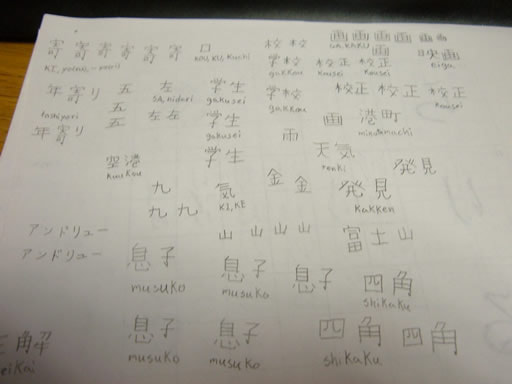 寄 寄 寄 寄 寄 寄 口 校 校 画 画 画 画 画 画
KOU, KU, Kuchi GA, KAKU
画
学校 校正 校正 映画
gakkou kousei kousei eiga
年寄り 五 左 学生 学校 校正 校正 校正
toshiyori SA, hidari gakusei gakkou kousei
五
年寄り 五 左 左 学生 画 港町
gakusei minatomachi
雨
空港 学生 天気 発見
kuukou tenki
九 氣 金 金 発見
KI, KE Kakken
九 九
アンドリュー 山 山 山 山 富士山
アンドリュー 息子 息子 息子 四角
musuko musuko shikaku
解 息子 息子 四角 四角
eikai musuko musuko shikaku